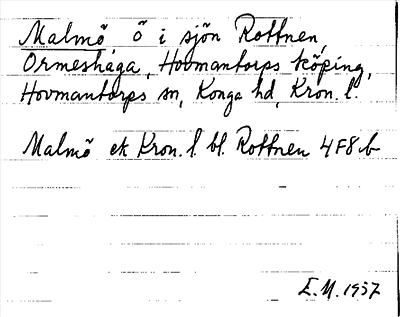 Malmö ö i sjön Rottnen,
Ormeshaga, Hovmantorps köping,
Hovmantorps sn, Konga hd, Kron. l.
Malmö ek Kron. l. bl. Rottnen 4F8b
E.M. 1957